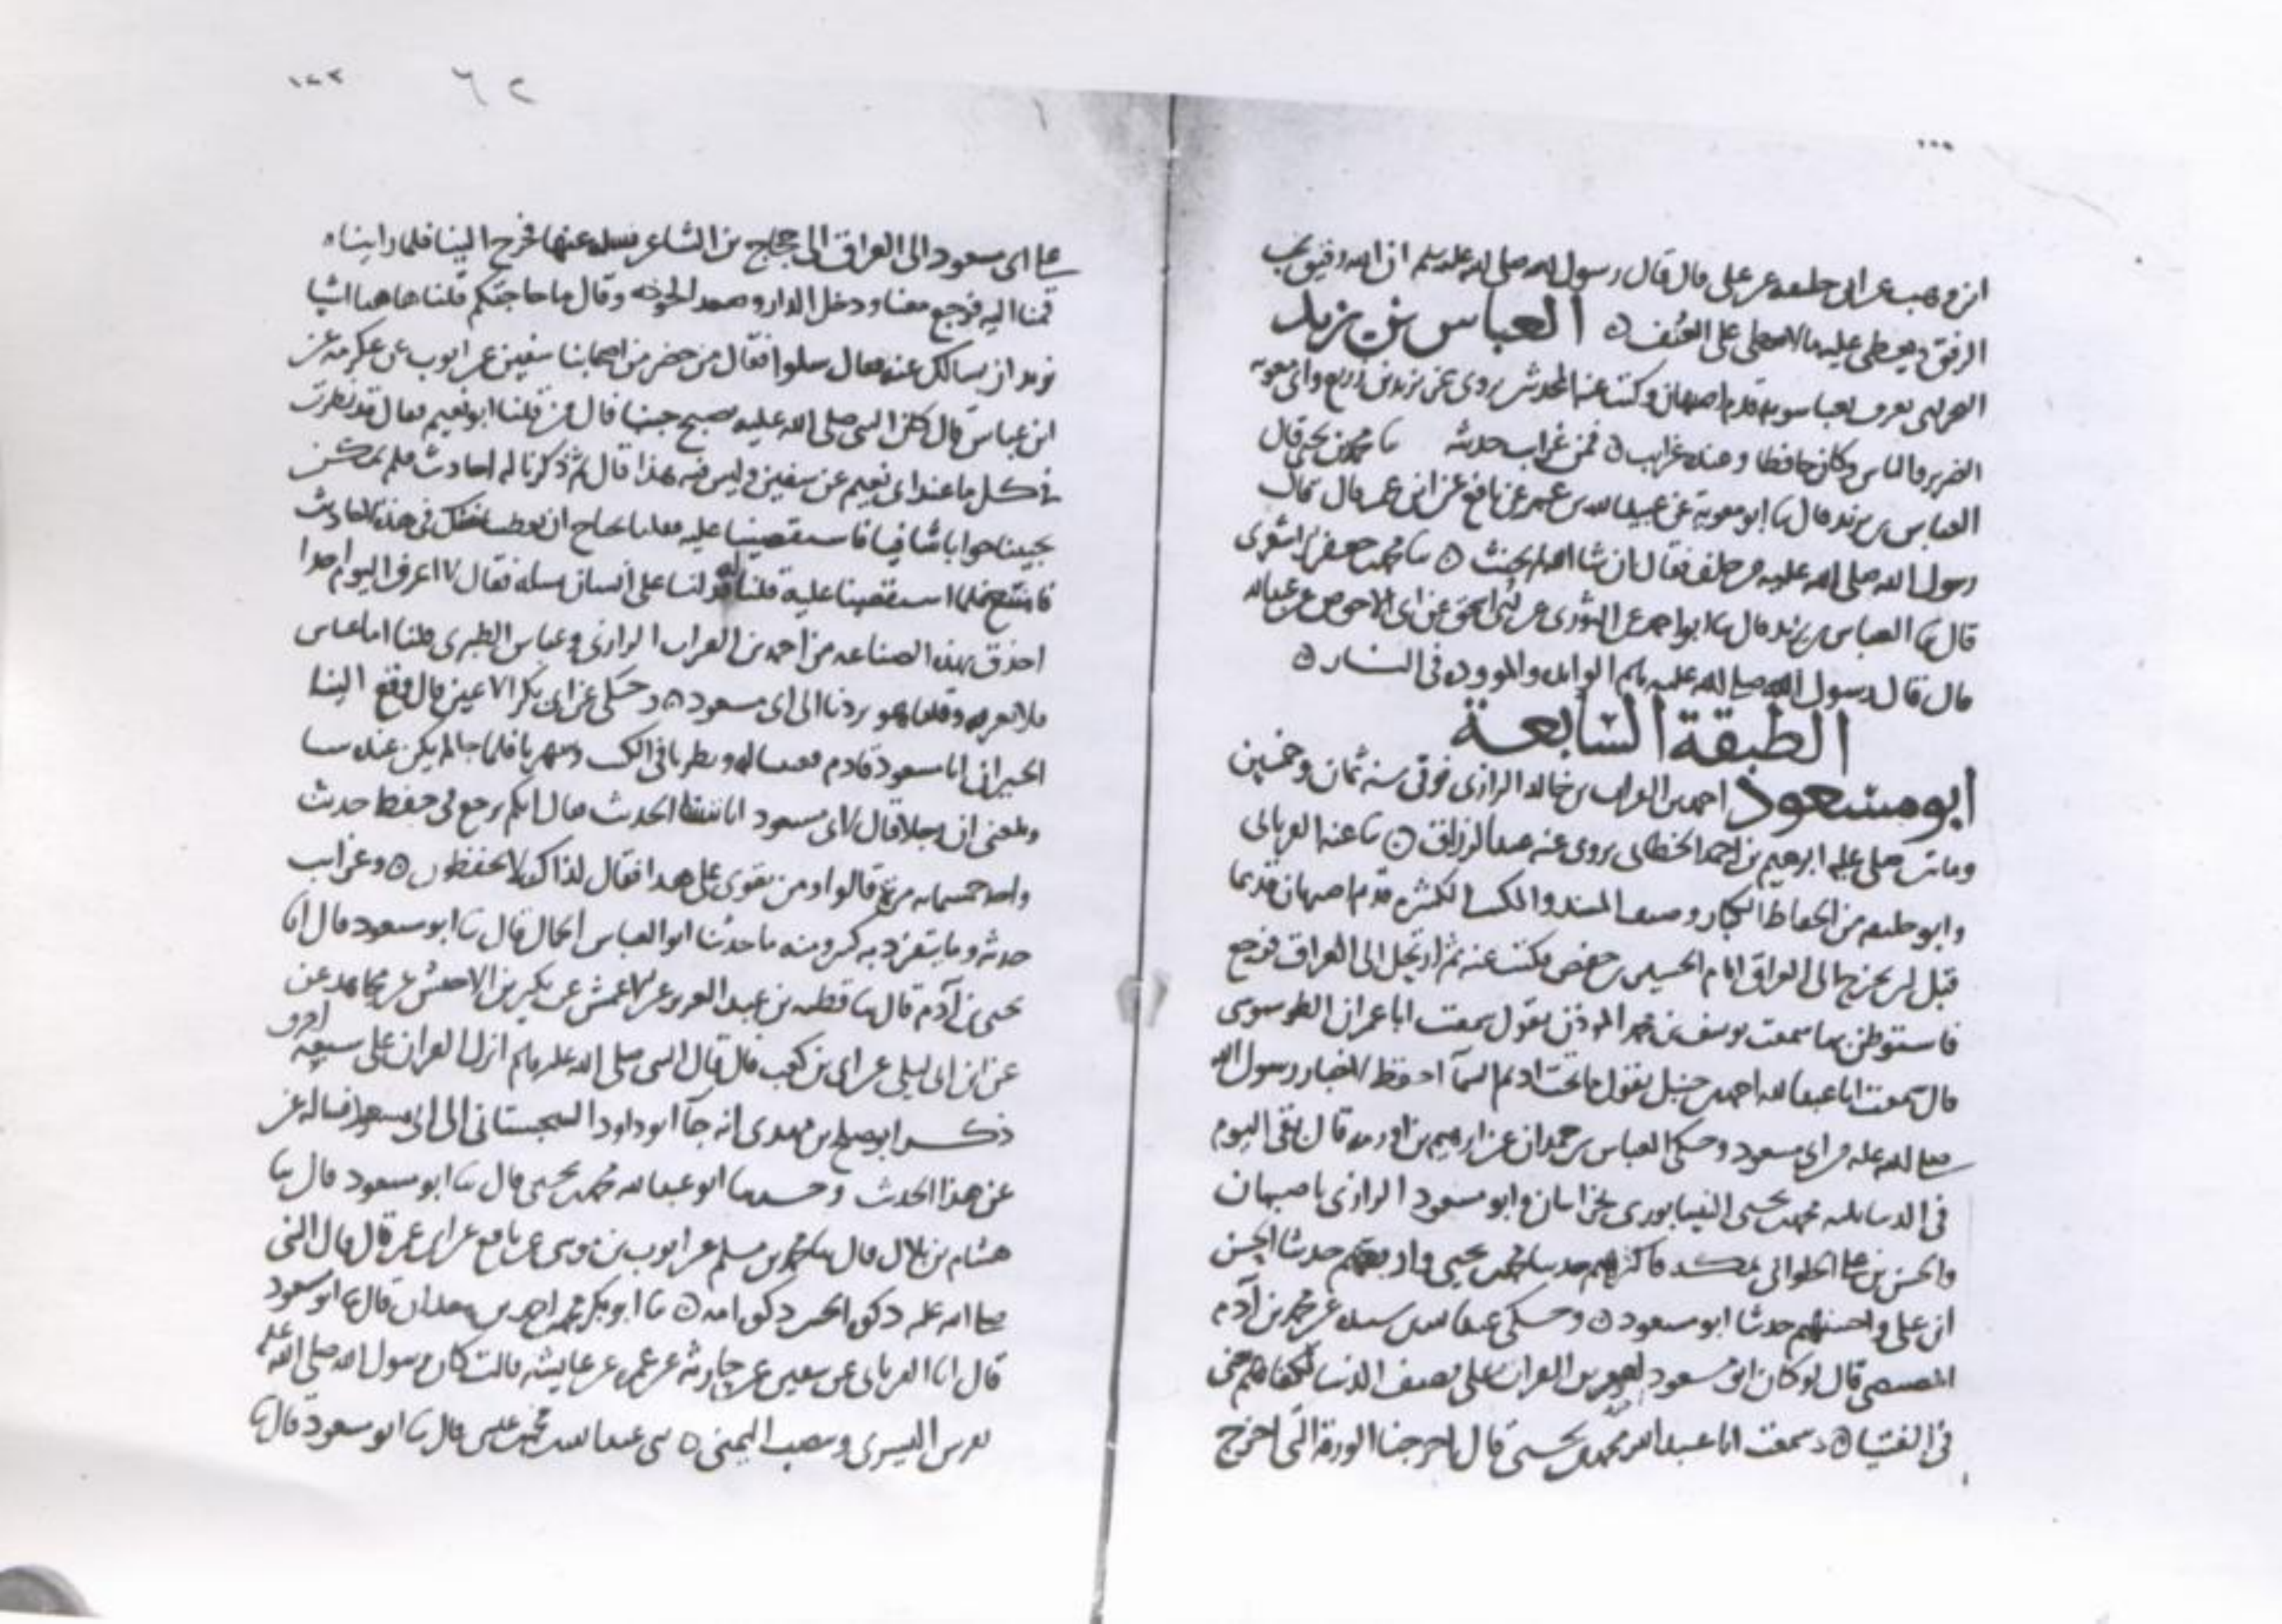 ابن وهب عن ابي خليفة عن علي قال قال رسول الله صلى الله عليه وسلم ان الله رفيق يحب
الرفق ويعطي عليه ما لا يعطي على العنف ه العباس بن يزيد
البحراني يعرف بعباسويه قدم اصبهان وكتب عنه المحدثين يروى عن يزيد بن زريع وابي معوية
الضرير والناس وكان حافظا وعنده غرايب ه فمن غرايب حدثه ثنا محمد بن يحيى قال
العباس بن يزيد قال ثنا ابو معوية عن عبيد الله بن عمر عن نافع عن ابن عمر قال قال
رسول الله صلى الله عليه من حلف فقال ان شا الله لم يحنث ه ثنا محمد بن جعفر الاشعري
قال ثنا العباس بن يزيد قال ثنا ابو احمد عن الثوري عن ابي اسحق عن ابي الاحوص عن عبد الله
قال قال رسول الله صلى الله عليه وسلم الوايده والموودة في النار ه
الطبقة السابعة
ابو مسعود احمد بن الفرات بن خالد الرازى توفى سنه ثمان وخمسين
ومايتين صلى عليه ابرهيم بن احمد الخطابي يروى عنه عبد الرزاق ه ثنا عنه الفريابي
وابو خليفه من الحفاظ الكبار وصنف المسند والكتب الكثيره قدم اصبهان قديما
قبل ان يخرج الى العراق ايام الحسين بن حفص فكتب عنه ثم ارتحل الى العراق فرجع
فاستوطن بها سمعت يوسف بن محمد الموذن يقول سمعت ابا عمران الطرسوسى
قال سمعت ابا عبد الله احمد بن حنبل يقول ما تحت اديم السمآ احفظ لاخبار رسول الله
صلى الله عليه من ابي مسعود وحكى العباس بن حمدان عن ابرهيم بن اورمه قال بقى اليوم
في الدنيا ثلثه محمد بن يحيى النيسابورى بخراسان وابو مسعود الرازى باصبهان
والحسن بن علي الحلوانى بمكه فاكثرهم حديثا محمد بن يحيى وارفعهم حديثا الحسن
ابن على واحسنهم حديثا ابو مسعود ه وحكى عبد الله بن سنده عن محمد بن آدم
المصيصي قال لو كان ابو مسعود احمد بن الفرات على نصف الدنيا لكفاهم يعنى
في الفتيا ه وسمعت ابا عبد الله محمد بن يحيى قال اخرجنا الورقة التى اخرج
علي ابي مسعود الى العراق الى حجاج بن الشاعر نسله عنها فخرج الينا فلما راينا ه
قمنا اليه فرجع معنا ودخل الدار وصعد الخوخه وقال ما حاجتكم قلنا هاهنا اشيا
نريد ان نسالك عنه فقال سلوا فقال من حضر من اصحابنا سفين عن ايوب عن عكرمه عن
ابن عباس قال كان النبي صلى الله عليه يصبح جنبا قال من قلنا ابو نعيم فقال قد نظرت
في كل ما عند ابي نعيم عن سفين وليس فيه هذا قال ثم ذكرنا له احاديث فلم يمكن
يجيبنا جوابا شافيا فاستقصينا عليه
فامتنع فلما استقصينا عليه قلنا له دلنا على انسان نسله فقال لا اعرف اليوم احدا
احذق بهذه الصناعه من احمد بن الفرات الرازى وعباس الطبرى قلنا اما عباس
فلا نعرفه وقلنا هو ردنا الى ابي مسعود ه وحكى عن ابي بكر الاعين قال وقع الينا
الخبر ان ابا مسعود قادم
وبلغنى ان رجلا قال لابي مسعود انا ننسى الحديث فقال ايكم يرجع في حفظ حديث
واحد خمسمايه مرة قالوا ومن يقوى على هذا فقال لذاك لا تحفظون ه وغرايب
حدثه وما يتفرد به كثير ومنه ما حدثنا ابو العباس الجمال قال ثنا ابو مسعود قال انا
يحيى بن آدم قال ثنا قطبه بن عبد العزيز عن الاعمش عن بكير بن الاخنس عن مجاهد عن
عن ابن ابي ليلى عن ابي بن كعب قال قال النبي صلى الله عليه وسلم انزل القران على سبعة احرف
ذكر ابو صلح بن مهدى انه جآ ابو داود السجستانى الى ابي مسعود فساله عن
عن هذا الحديث وحدثنا ابو عبد الله محمد بن يحيى قال ثنا ابو مسعود قال ثنا
هشام بن بلال قال ثنا محمد بن مسلم عن ايوب بن موسى عن نافع عن ابن عمر قال قال النبي
صلى الله عليه ذكوة الجنين ذكوة امه ه ثنا ابو بكر محمد بن احمد بن معدان قال ثنا ابو مسعود
قال انا الفريابي عن سفين عن حارثه عن عمره عن عايشه قالت كان رسول الله صلى الله عليه
يفرش اليسرى وينصب اليمنى ه ثنى عبد الله بن محمد بن عيسى قال ثنا ابو مسعود قال ثنا